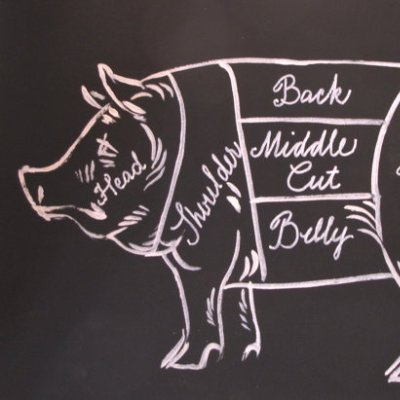 Back
Middle
Cut
Belly
Head
Shoulder